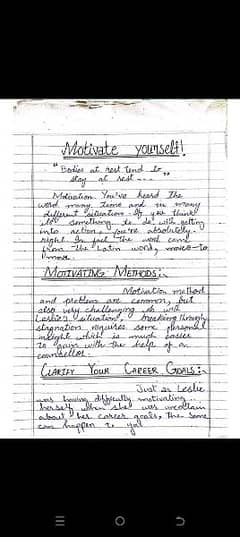 Motivate yourself!
"Bodies at rest tend to
stay at rest ..."
Motivation You've heard the
word many time and in many
different situation. If you think
something to do with getting
into action, you're absolutely
right. In fact the word came
from the Latin word, move-to
move.
MOTIVATING METHODS:-
Motivation method
and problem are common, but
also very challenging. As with
Leslie's situation, breaking through
stagnation requires some personal
insight which is much easier
to gain with the help of a
counsellor.
CLARIFY YOUR CAREER GOALS:-
Just as Leslie
was having difficulty motivating
herself when she was uncertain
about her career goals, the same
can happen to you